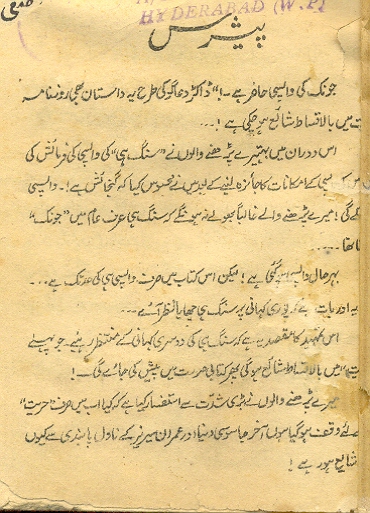 HYDERABAD (W.P)
پیشرس
جونک کی واپسی حاضر ہے۔! "ڈاکٹر دعاگو کی طرح یہ داستان بھی روزنامہ
میں بالاقساط شائع ہو چکی ہے!...
اس دوران میں بہتیرے پڑھنے والوں نے "سنگ ہی" کی واپسی کی فرمائش کی
کے امکانات کا جائزہ لینے کے بعد میں نے محسوس کیا کہ گنجائش ہے!۔ واپسی
گی! میرے پڑھنے والے غالباً بھولے نہ ہونگے کہ سنگ ہی عرف عام میں "جونک"
تھا.....
بہرحال واپسی ہو گئی ہے! لیکن اس کتاب میں صرف واپسی ہی کی حد تک ہے...
یہ اور بات ہے کہ پوری کہانی پر سنگ ہی چھایا نظر آئے...
اس تمہید کا مقصد یہ ہے کہ سنگ ہی کی دوسری کہانی کے منتظر رہئے جو پہلے
میں بالاقساط شائع ہو گی پھر کتابی صورت میں پیش کی جائے گی۔!
میرے پڑھنے والوں نے بڑی شدت سے استفسار کیا ہے کہ کیا اب میں صرف "حریت"
کے لئے وقف ہو گیا ہوں آخر جاسوسی دنیا اور عمران سیریز کے ناول پابندی سے کیوں
شایع ہو رہے!